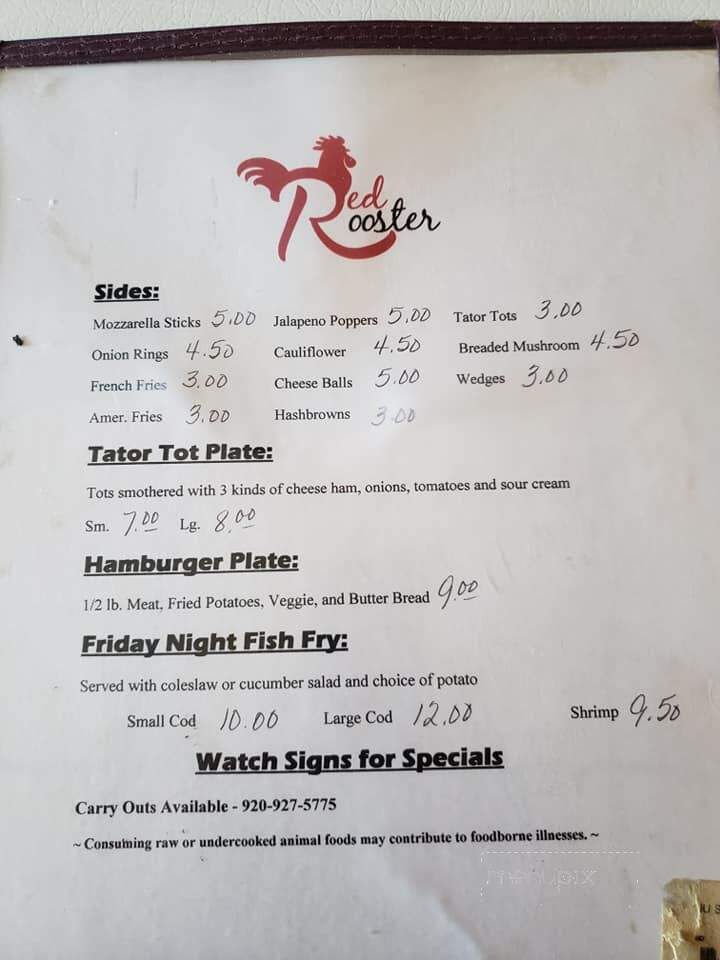 Red
Rooster
Sides:
Mozzarella Sticks 5.00 Jalapeno Poppers 5.00 Tator Tots 3.00
Onion Rings 4.50 Cauliflower 4.50 Breaded Mushroom 4.50
French Fries 3.00 Cheese Balls 5.00 Wedges 3.00
Amer. Fries 3.00 Hashbrowns 3.00
Tator Tot Plate:
Tots smothered with 3 kinds of cheese ham, onions, tomatoes and sour cream
Sm. 7.00 Lg. 8.00
Hamburger Plate:
1/2 lb. Meat, Fried Potatoes, Veggie, and Butter Bread 9.00
Friday Night Fish Fry:
Served with coleslaw or cucumber salad and choice of potato
Small Cod 10.00 Large Cod 12.00 Shrimp 9.50
Watch Signs for Specials
Carry Outs Available - 920-927-5775
~ Consuming raw or undercooked animal foods may contribute to foodborne illnesses. ~
menupix